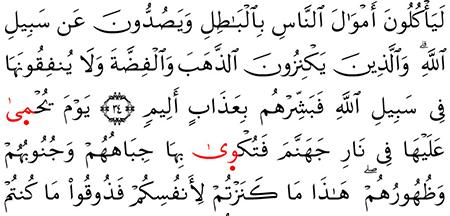 لَيَأْكُلُونَ أَمْوَٰلَ ٱلنَّاسِ بِٱلْبَـٰطِلِ وَيَصُدُّونَ عَن سَبِيلِ
ٱللَّهِ ۗ وَٱلَّذِينَ يَكْنِزُونَ ٱلذَّهَبَ وَٱلْفِضَّةَ وَلَا يُنفِقُونَهَا
فِى سَبِيلِ ٱللَّهِ فَبَشِّرْهُم بِعَذَابٍ أَلِيمٍ ﴿٣٤﴾ يَوْمَ يُحْمَىٰ
عَلَيْهَا فِى نَارِ جَهَنَّمَ فَتُكْوَىٰ بِهَا جِبَاهُهُمْ وَجُنُوبُهُمْ
وَظُهُورُهُمْ ۖ هَـٰذَا مَا كَنَزْتُمْ لِأَنفُسِكُمْ فَذُوقُوا۟ مَا كُنتُمْ